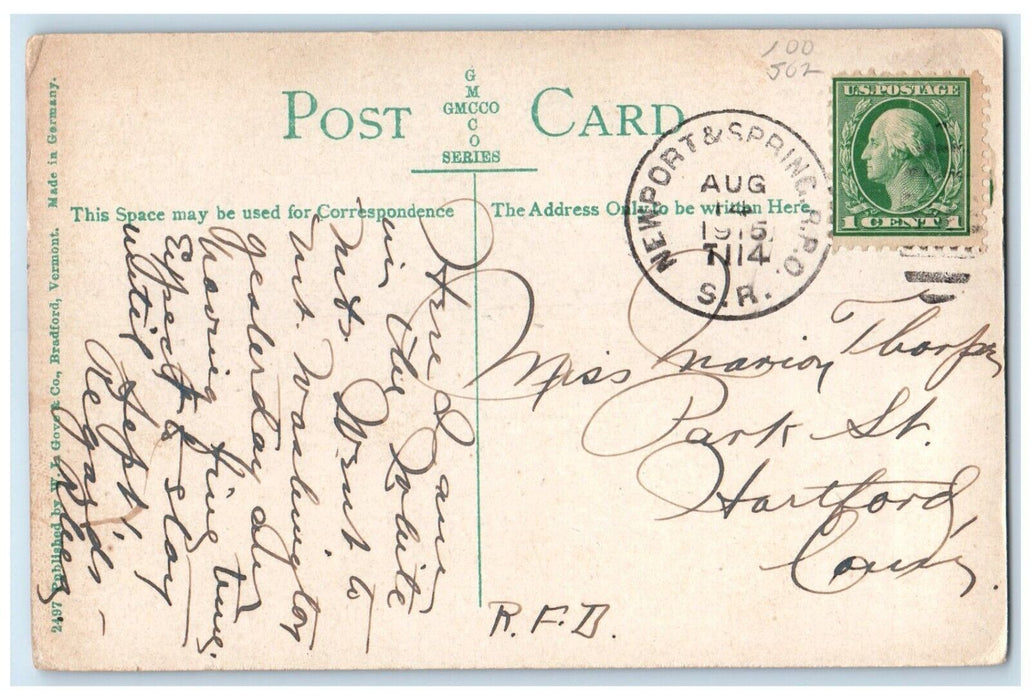 100
502
POST CARD
G
M
GMCCO
C
O
SERIES
U.S. POSTAGE
1 CENT 1
NEWPORT & SPRING. R.P.O.
AUG
14
1915
T114
S.R.
This Space may be used for Correspondence
The Address Only to be written Here
Here I am
in the White
Mts. Went to
Mt. Washington
yesterday am
having fine time.
Expect to stay
until Sept,
Regards
Miss Marion Thorpe
Park St.
Hartford
Conn.
R.F.D.
2497 Published by W. L. Gove & Co., Bradford, Vermont. Made in Germany.